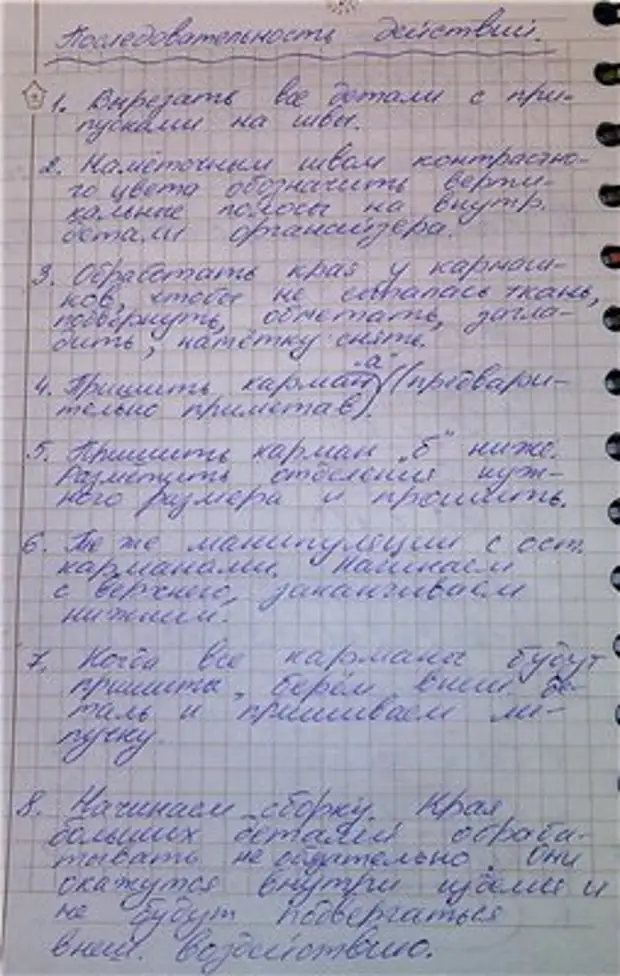 Последовательность действий.
1. Вырезать все детали с при-
пусками на швы.
2. Намёточным швом контрастно-
го цвета обозначить верти-
кальные полосы на внутр.
детали органайзера.
3. Обработать края у кармаш-
ков, чтобы не сыпалась ткань,
подвернуть, обметать, загла-
дить, намётку снять.
4. Пришить карман „а" (предвари-
тельно приметав).
5. Пришить карман „б" ниже.
Разметить отделения нуж-
ного размера и прошить.
6. Те же манипуляции с ост.
карманами. Начинаем
с верхнего, заканчиваем
нижним.
7. Когда все карманы будут
пришиты, берём внеш. де-
таль и пришиваем ли-
пучку.
8. Начинаем сборку. Края
больших деталей обраба-
тывать не обязательно. Они
окажутся внутри изделия и
не будут подвергаться
внеш. воздействию.